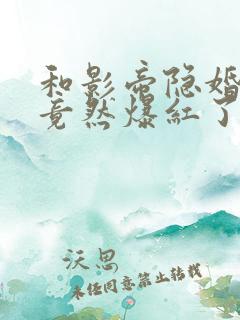 和影帝隐婚
竟然爆红了
沃思
未经同意禁止转载